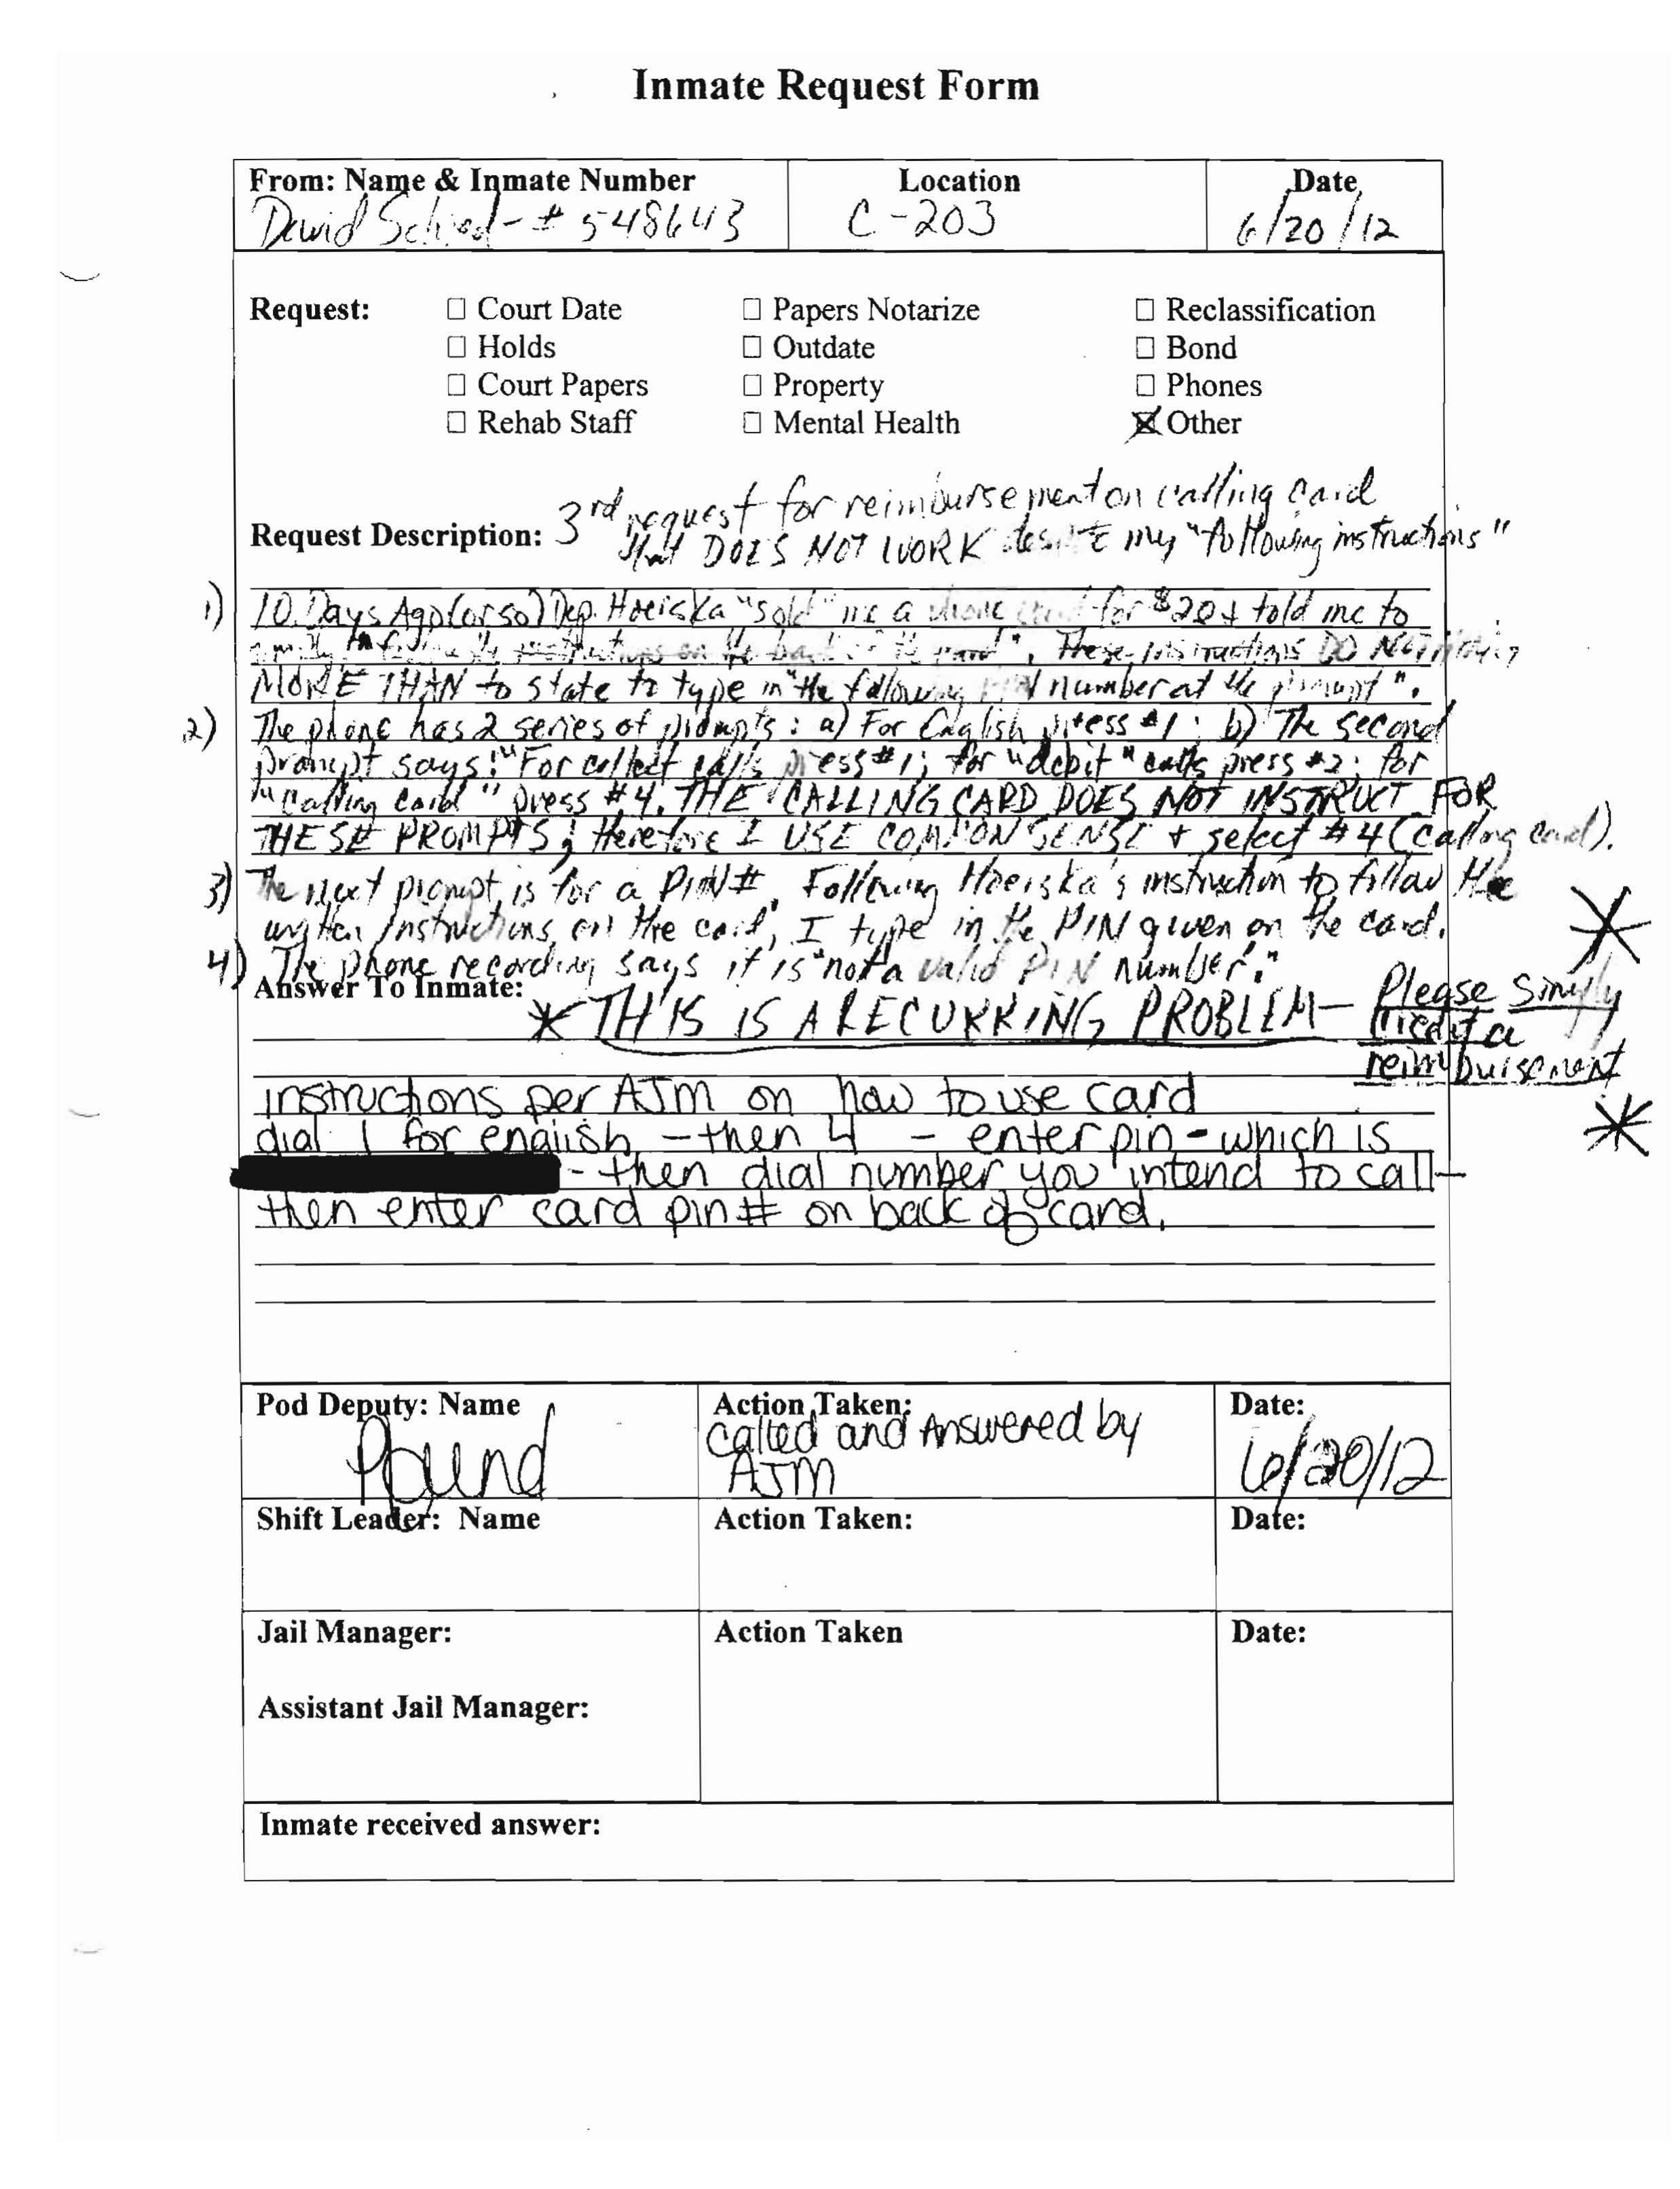 Inmate Request Form
From: Name & Inmate Number
Location
Date
David Schied - # 548643
C-203
6/20/12
Request:
☐ Court Date
☐ Papers Notarize
☐ Reclassification
☐ Holds
☐ Outdate
☐ Bond
☐ Court Papers
☐ Property
☐ Phones
☐ Rehab Staff
☐ Mental Health
☒ Other
Request Description: 3rd request for reimbursement on calling card
that DOES NOT WORK despite my "following instructions"
1) 10 Days Ago (or so) Dep. "sold" me a phone card for $20 & told me to
on the back of the card". These instructions DO NOTHING
MORE THAN to state to type in "the following PIN number at the prompt".
2) The phone has 2 series of prompts: a) For English press #1; b) The second
prompt says: "For collect calls press #1; for "debit" calls press #2; for
"calling card" press #4. THE CALLING CARD DOES NOT INSTRUCT FOR
THESE PROMPTS; therefore I USE COMMON SENSE + select #4 (calling card).
3) The next prompt is for a PIN#. Following Hoerska's instruction to follow the
written instructions on the card, I type in the PIN given on the card.
4) The phone recording says it is "not a valid PIN number."
Answer To Inmate:
* THIS IS A RECURRING PROBLEM - Please simply
credit a
reimbursement
*
*
instructions per AJM on how to use card
dial 1 for english - then 4 - enter pin - which is
- then dial number you intend to call -
then enter card pin # on back of card.
Pod Deputy: Name
Action Taken:
Date:
Pound
called and answered by
AJM
6/20/12
Shift Leader: Name
Action Taken:
Date:
Jail Manager:
Action Taken
Date:
Assistant Jail Manager:
Inmate received answer: